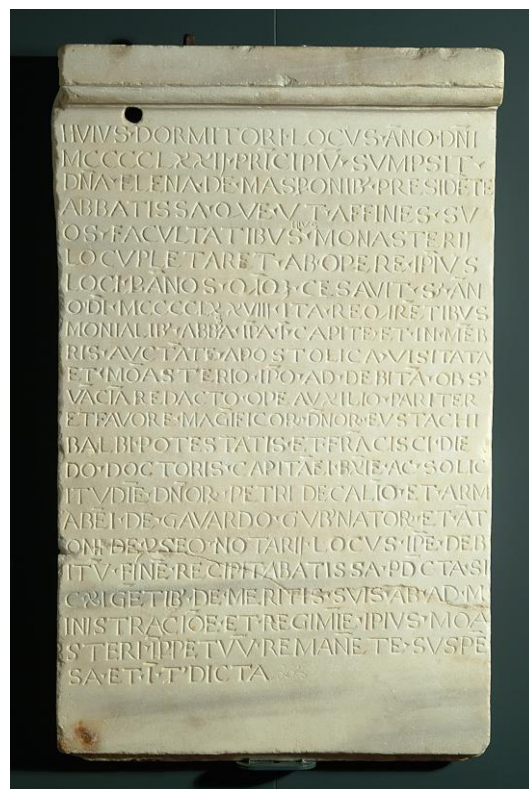 HVIVS·DORMITORI·LOCVS·ANO·DNI
MCCCCCLXXIJ·PRICIPIV·SVMPSIT·
DNA·ELENA·DE·MASPONIB'·PRESIDETE
ABBATISSA·QVE·VT·AFFINES·SV
OS·FACVLTATIBVS·MONASTERIJ
LOCVPLETARET·AB·OPERE·IPIVS
LOCI·P·ANOS·CESAVIT·S·AN
O·DI·MCCCCLXXVIII·ITA·REQIRETIBVS
MONIALIB'·ABBA·IPA·I·CAPITE·ET·IN·MEB
RIS·AVCTATE·APOSTOLICA·VISITATA
ET·MOASTERIO·IPO·AD·DEBITA·OBS'
VACIA·REDACTO·OPE·AVXILIO·PARITER
ET·FAVORE·MAGIFICOR·DNOR·EVSTACHI
BALBI·POTESTATIS·ET·FRACISCI·DIE
DO·DOCTORIS·CAPITAEI·BXIE·AC·SOLIC
ITVDIE·DNOR·PETRI·DE·CALIO·ET·ARM
ABEI·DE·GAVARDO·GVB'NATOR·ET·AT
ONI·DE·NOTARIJ·LOCVS·IPE·DEB
ITV·FINE·RECIPIT·ABATISSA·PDCTA·SI
C·EXIGETIB'·DEMERITIS·SVIS·AB·ADM
INISTRACIOE·ET·REGIMIE·IPIVS·MOA
STERI·IPPETVV·REMANETE·SVSPE
SA·ET·I·T'DICTA